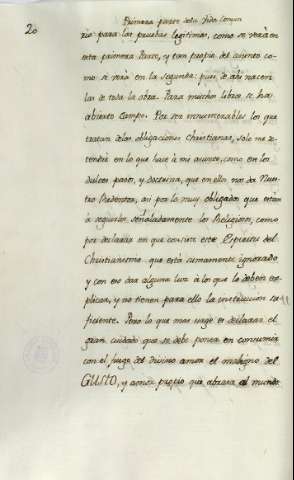 20
Primera parte de la Vida Comun
rio para las pruebas legitimas, como se verá en
esta primera Parte, y tan propia del asiento co-
mo se verá en la segunda: pues de ahi nacen
las de toda la obra. Para muchos libros se ha
abierto Campo. Por ser innumerables los que
tratan de las obligaciones Christianas, solo me de-
tendré en lo que hace á mi asunto, como en los
dulces pasos, y doctrina, que en ello nos da Nues-
tro Redentor, asi por lo muy obligados que estan
á seguirlos señaladamente los Religiosos, como
por declarar en que consiste este Espiritu del
Christianismo, que está sumamente ignorado
y con eso dar alguna luz á los que lo deben ex-
plicar, y no tienen para ello la instruccion su-
ficiente. Pero lo que mas urge es declarar el
gran cuidado que se debe poner en consumir
con el fuego del divino amor el maligno del
GUSTO, y amor propio que abrasa al mundo